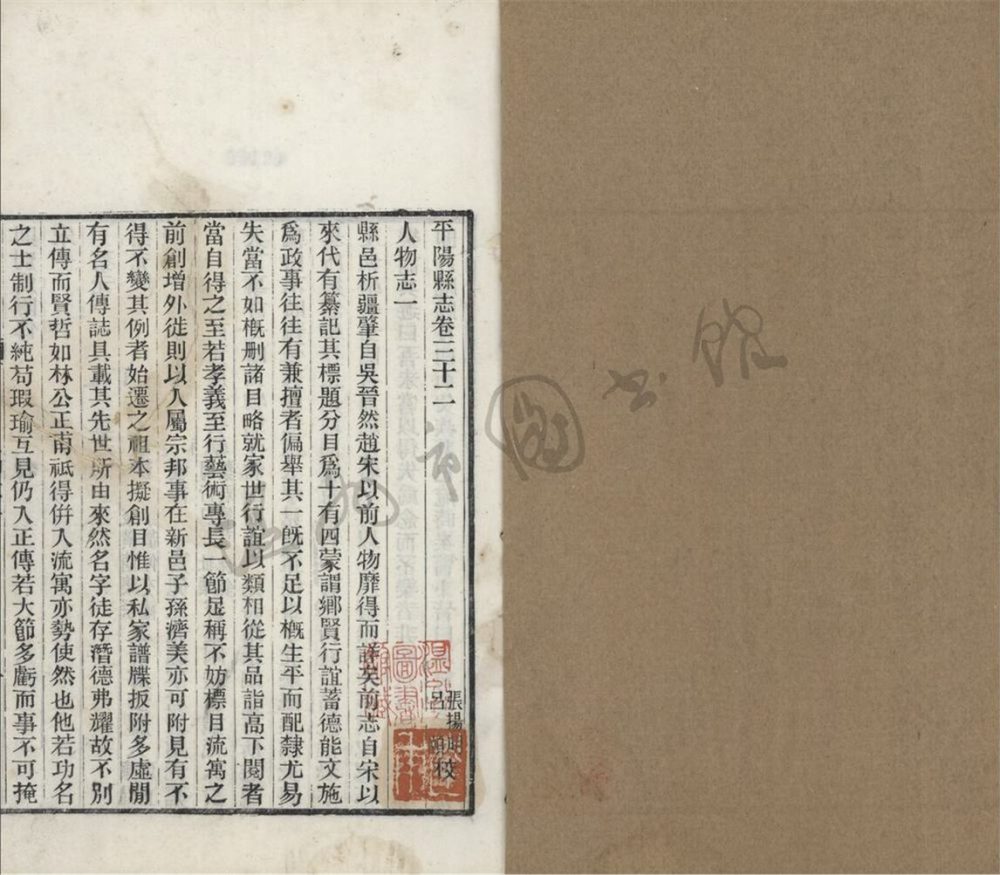 平陽縣志卷三十二
人物志一
張揚明
呂
校
縣邑析疆肇自吳晉然趙宋以前人物靡得而詳矣前志自宋以
來代有纂記其標題分目爲十有四蒙謂鄉賢行誼蓄德能文施
爲政事往往有兼擅者偏舉其一旣不足以槪生平而配隸尤易
失當不如槪刪諸目略就家世行誼以類相從其品詣高下閱者
當自得之至若孝義至行藝術專長一節足稱不妨標目流寓之
前創增外徙則以人屬宗邦事在新邑子孫濟美亦可附見有不
得不變其例者始遷之祖本擬創目惟以私家譜牒扳附多虛閒
有名人傳誌具載其先世所由來然名字徒存潛德弗耀故不別
立傳而賢哲如林公正甫祇得倂入流寓亦勢使然也他若功名
之士制行不純苟瑕瑜互見仍入正傳若大節多虧而事不可掩
溫州市圖書館